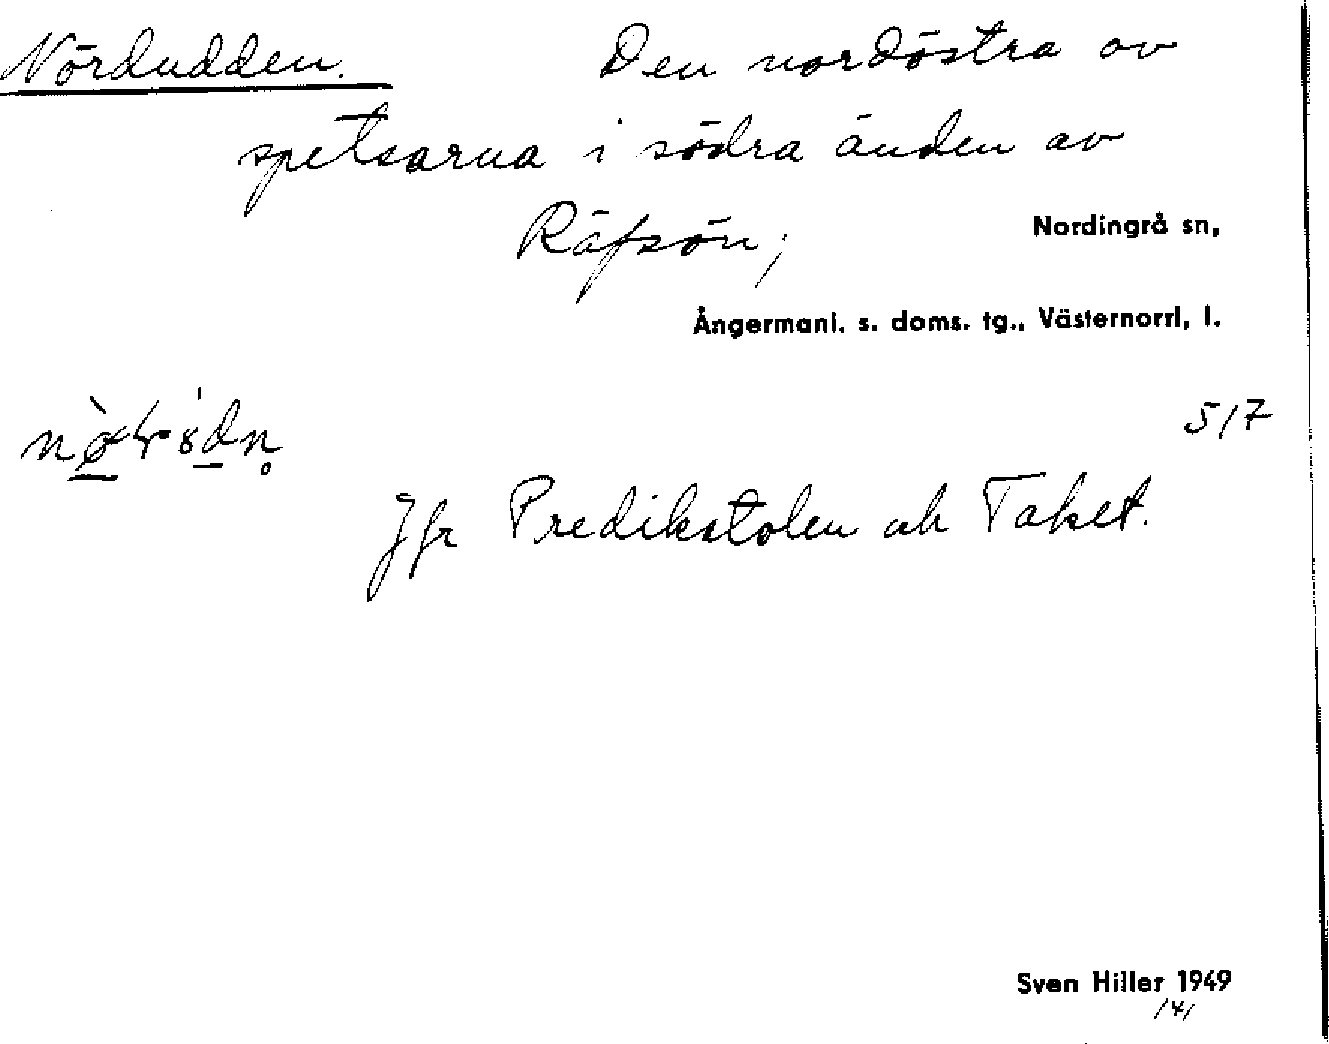 Nördudden. Den nordöstra av
spetsarna i södra änden av
Räfsön;
Nordingrå sn,
Ångermanl. s. doms. tg., Västernorrl, l.
517
Jfr Predikstolen och Taket.
Sven Hiller 1949